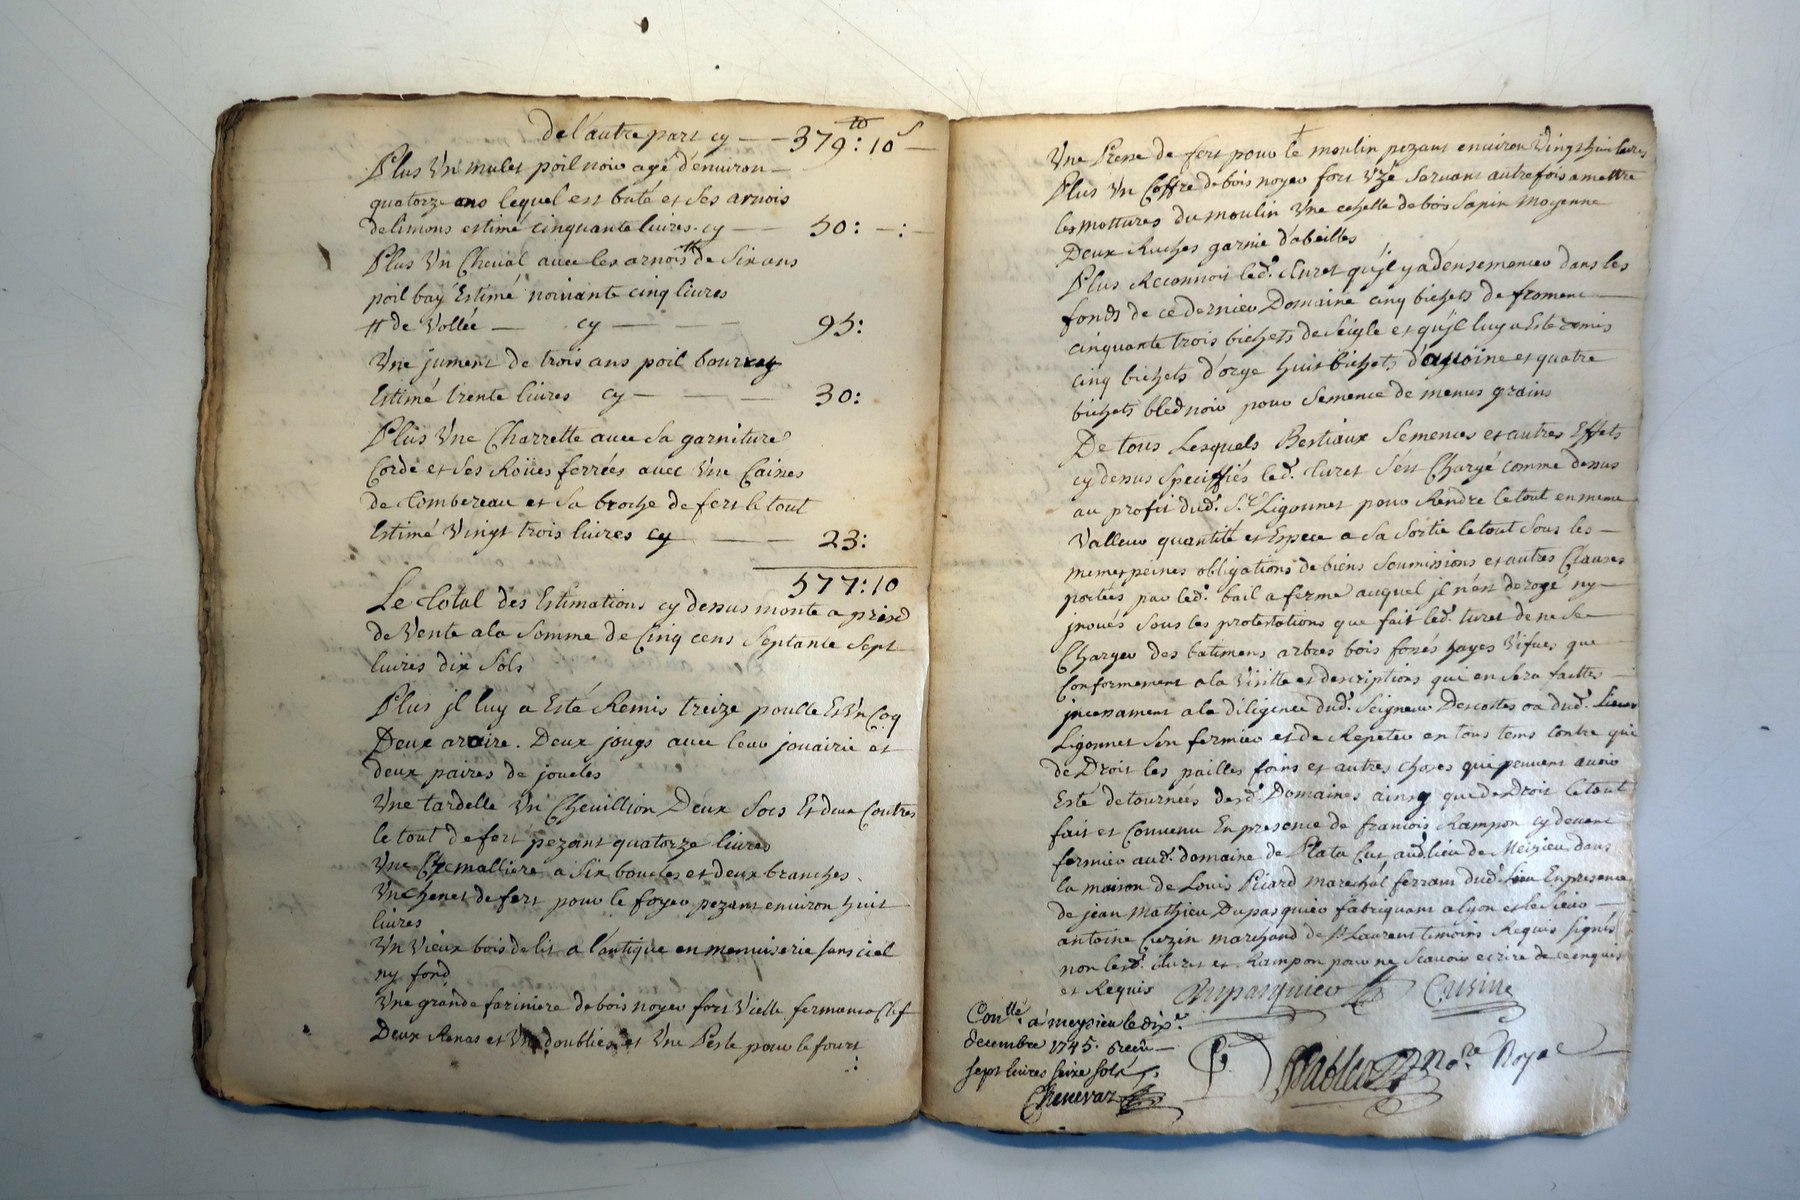 de l'autre part cy — 379 : 10 s
Plus Un mulet poil noir agé d'environ
quatorze ans lequel est baté et ses arnois
de limons estimé cinquante livres cy — 50 : — :
Plus Un Cheval avec les arnois # de Six ans
poil bay Estimé noinante cinq livres
# de Vollée — cy — 95 :
Une jument de trois ans poil
Estimé trente livres cy — 30 :
Plus Une Charrette avec Sa garniture
Corde et Ses Roües ferrées avec Une Caines
de tombereau et Sa broche de fert le tout
Estimé Vingt trois livres cy — 23 :
577 : 10
Le total des Estimations cy dessus monte a prix
de Vente a la Somme de Cinq cens Septante Sept
livres dix Sols
Plus jl luy a Esté Remis treize poulle Et Un Coq
Deux araire. Deux jougs avec leur jouairie et
deux paires de joucles
Une tardelle Un Chevillion Deux Socs Et deux Coutres
le tout de fert pezant quatorze livres
Une Cremalliere a Six boucles et deux branches
Un Chenet de fert pour le foyer pezant environ huit
livres
Un Vieux bois de lit a l'antique en menuiserie sans ciel
ny fond
Une grande fariniere de bois noyer fort Vielle fermant a Clef
Deux et et Une Pesle pour le fourt
Une de fert pour le moulin pezant environ Vingt huit livres
Plus Un Coffre de bois noyer fort Uzé Servant autrefois a mettre
les mottures du moulin Une echelle de bois Sapin moyenne
Deux Ruches garnie d'abeilles
Plus Reconnoit led. Curet qu'jl y a d'ensemencer dans les
fonds de ce dernier Domaine cinq bichets de froment
cinquante trois bichets de Seigle et qu'jl luy a Esté remis
cinq bichets d'orge huit bichets d'avoine et quatre
bichets bled noir pour Semence de menus grains
De tous Lesquels Bestiaux Semences et autres Effets
cy dessus Speciffiés led. Curet S'est Chargé comme dessus
au profit dud. Sr Ligonnet pour Rendre le tout en meme
Valleur quantité et Espece a Sa Sortie le tout Sous les
memes peines obligations de biens Soumissions et autres Clauses
portées par led. bail a ferme auquel jl n'est derogé ny
jnoués Sous les protestations que fait led. Curet de ne Se
Charger des batimens arbres bois fossés hayes Vifues que
Conformement a la Visitte et descriptions qui en Sera faittes
jncessament a la diligence dud. Seigneur Descostes ou dud. Sieur
Ligonnet Son fermier et de Repeter en tous tems contre qui
de Droit les pailles foins et autres choses qui peuvent avoir
Esté detournées desd. Domaines ainsy que de Droit le tout
fait et Convenu En presence de francois Rampon cy devant
fermier aud. domaine de Plata Cut aud. lieu de Meizieu dans
la maison de Louis Picard marechal ferrant dud. Lieu En presence
de jean Mathieu Dupasquier fabriquant a lyon et le Sieur
antoine marchand de St Laurent temoins Requis Signés
non lesd. Curet et Rampon pour ne Scavoir ecrire de ce enquis
et Requis Dupasquier
Conllé a meysieu le dix
decembre 1745. Receu
sept livres seize sols
Chenevaz
Nore Royal